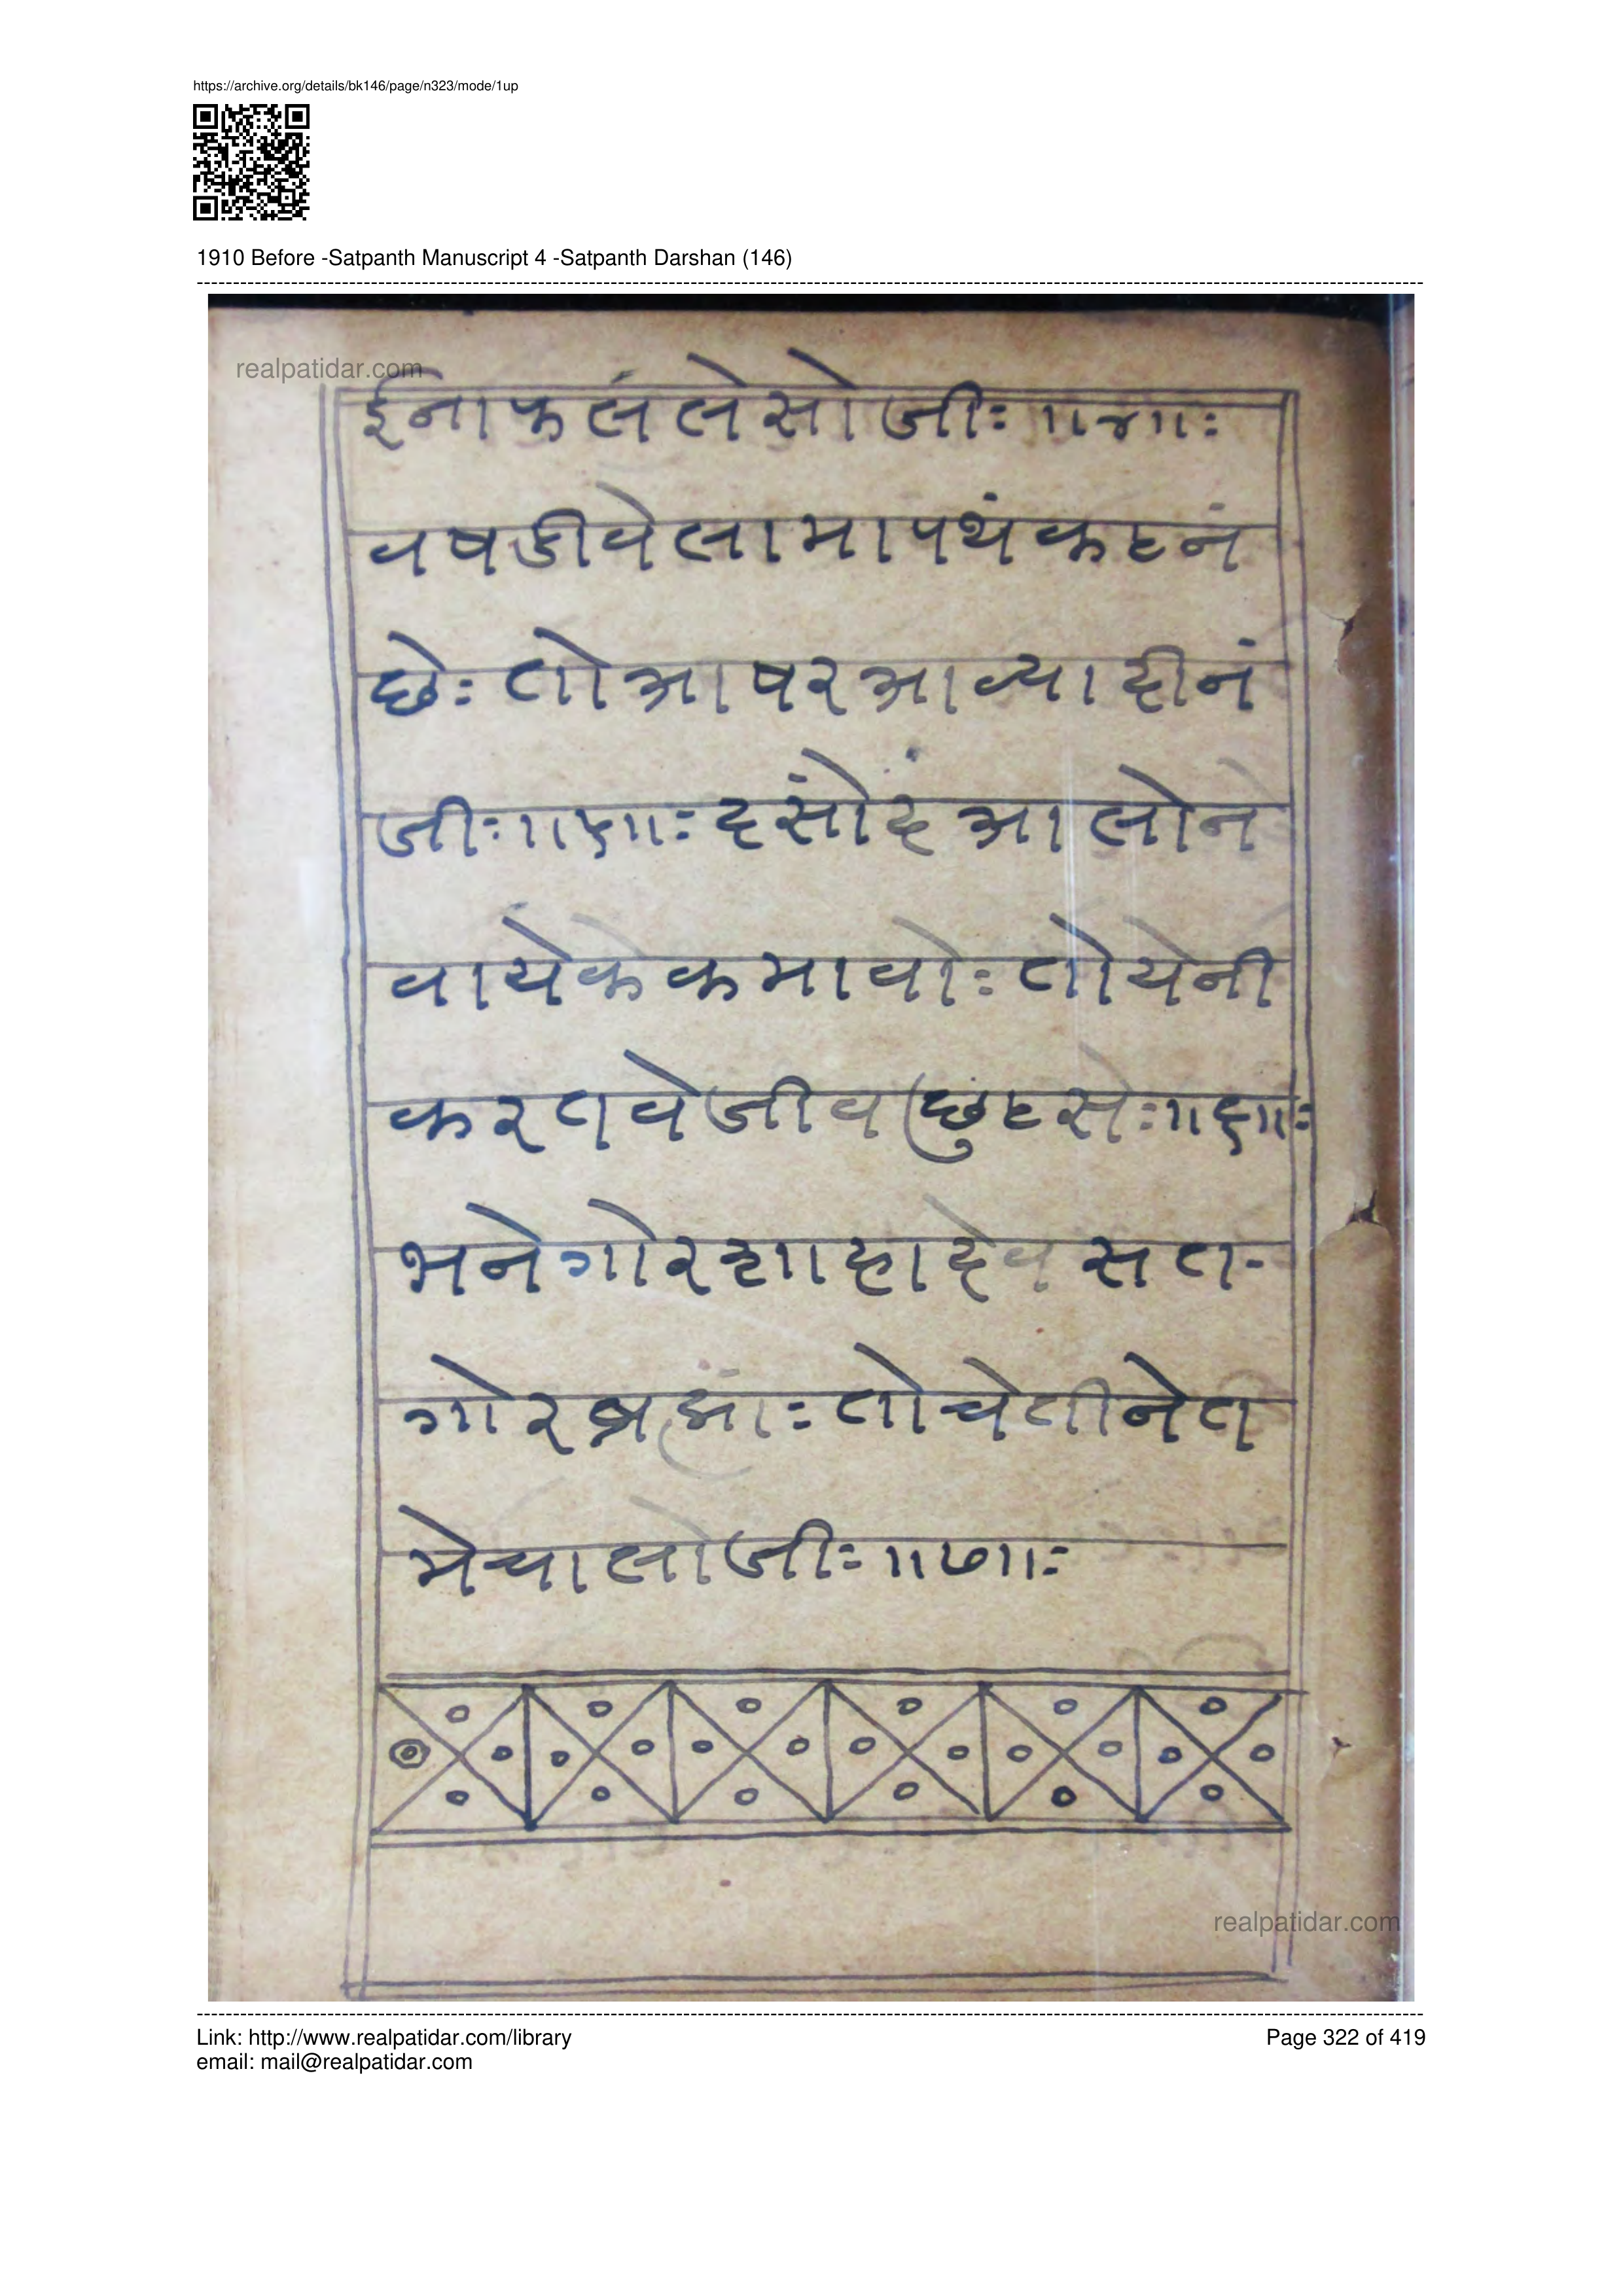 https://archive.org/details/bk146/page/n323/mode/1up
1910 Before -Satpanth Manuscript 4 -Satpanth Darshan (146)
realpatidar.com
ईनाफलंलेसोजीः॥४॥ः
वषडीवेलामापथंकठनं
छेः तोआषरआव्याहीनं
जीः॥५॥ः दसोंदंआलोने
वायेकेकमावोः तोयेनी
करणवेजीवछुटसेः॥६॥ः
भनेगोरशाहादेवसत-
गोरब्रह्मांः तोचेतीनेत
मेचालोजीः॥७॥ः
realpatidar.com
Link: http://www.realpatidar.com/library
email: mail@realpatidar.com
Page 322 of 419